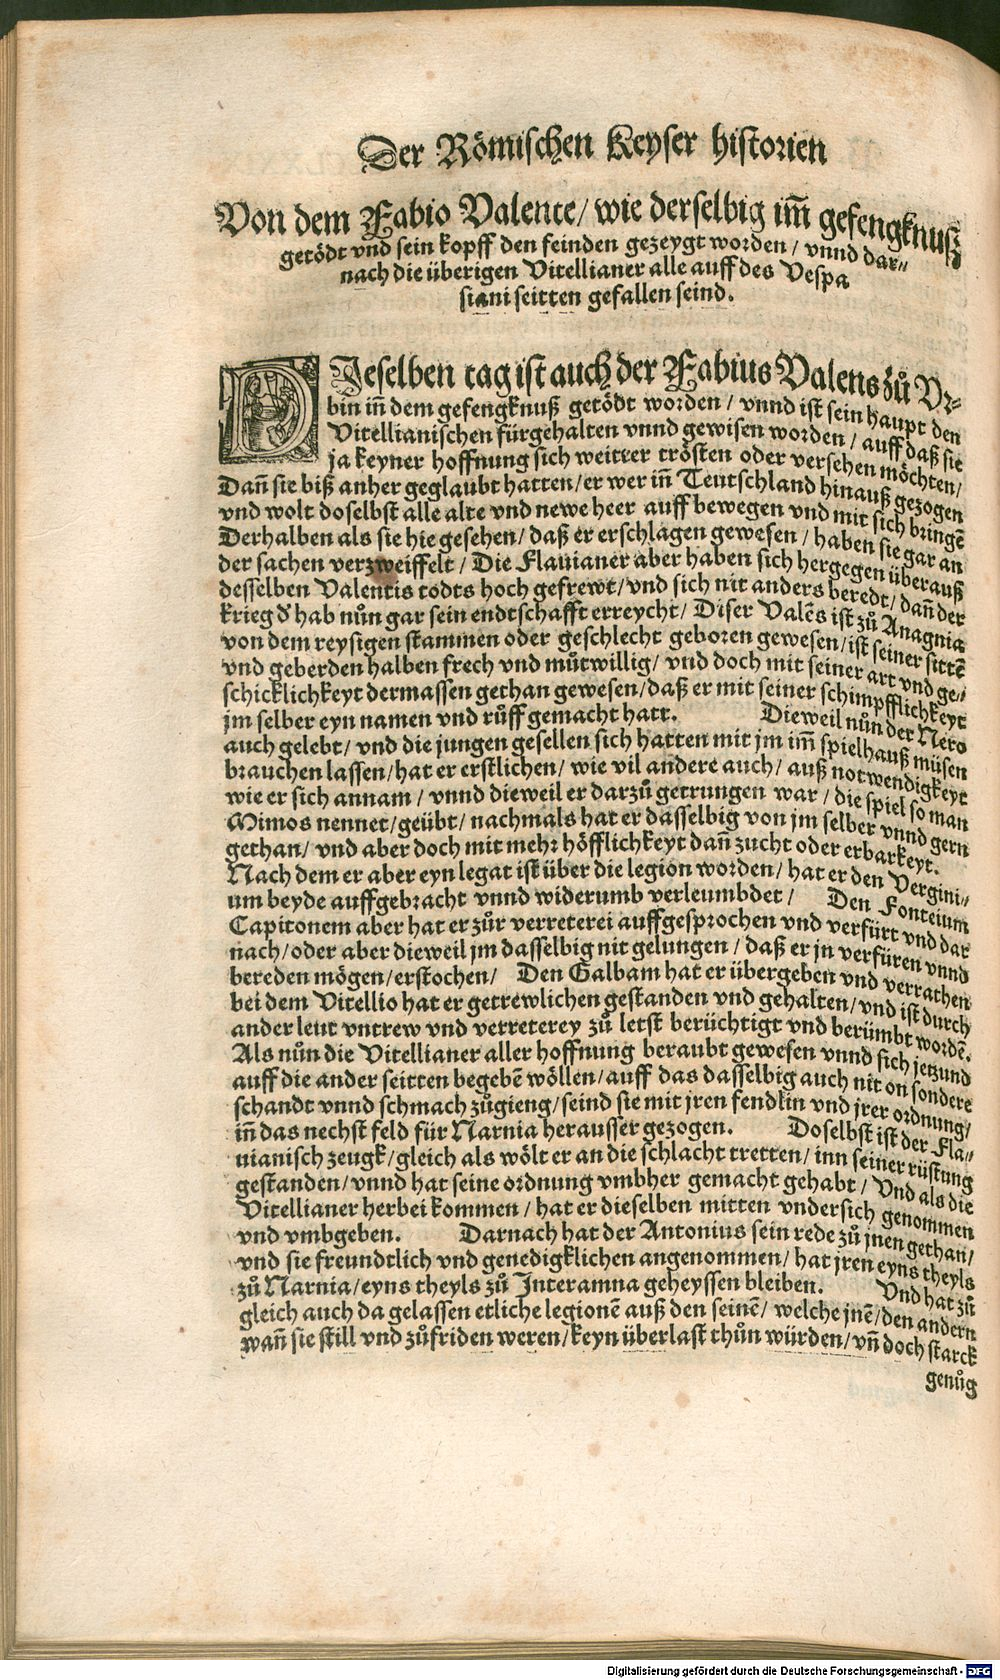 Der Römischen Keyser historien
Von dem Fabio Valente/ wie derselbig im̃ gefengknuß
getödt vnd sein kopff den feinden gezeygt worden/ vnnd dar⸗
nach die überigen Vitellianer alle auff des Vespa
siani seitten gefallen seind.
DIeselben tag ist auch der Fabius Valens zů Vr⸗
bin in̄ dem gefengknuß getödt worden/ vnnd ist sein haupt den
Vitellianischen fürgehalten vnnd gewisen worden/ auff daß sie
ja keyner hoffnung sich weitter trösten oder versehen möchten/
Dan̄ sie biß anher geglaubt hatten/ er wer in̄ Teutschland hinauß gezogen
vnd wolt doselbst alle alte vnd newe heer auff bewegen vnd mit sich bringē
Derhalben als sie hie gesehen/ daß er erschlagen gewesen/ haben sie gar an
der sachen verzweiffelt/ Die Flauianer aber haben sich hergegen überauß
desselben Valentis todts hoch gefrewt/ vnd sich nit anders beredt/ dan̄ der
krieg d' hab nůn gar sein endtschafft erreycht/ Diser Valēs ist zů Anagnia
von dem reysigen stammen oder geschlecht geboren gewesen/ ist seiner sittē
vnd geberden halben frech vnd můtwillig/ vnd doch mit seiner art vnd ge⸗
schicklichkeyt dermassen gethan gewesen/ daß er mit seiner schimpfflichkeyt
jm selber eyn namen vnd růff gemacht hatt. Dieweil nůn der Nero
auch gelebt/ vnd die jungen gesellen sich hatten mit jm im̄ spielhauß müsen
brauchen lassen/ hat er erstlichen/ wie vil andere auch/ auß notwendigkeyt
wie er sich annam/ vnnd dieweil er darzů getrungen war/ die spiel so man
Mimos nennet/ geübt/ nachmals hat er dasselbig von jm selber vnnd gern
gethan/ vnd aber doch mit mehr höfflichkeyt dan̄ zucht oder erbarkeyt.
Nach dem er aber eyn legat ist über die legion worden/ hat er den Vergini⸗
um beyde auffgebracht vnnd widerumb verleumbdet/ Den Fonteium
Capitonem aber hat er zůr verreterei auffgesprochen vnd verfürt vnd dar
nach/ oder aber dieweil jm dasselbig nit gelungen/ daß er jn verfüren vnnd
bereden mögen/ erstochen/ Den Galbam hat er übergeben vnd verrathen
bei dem Vitellio hat er getrewlichen gestanden vnd gehalten/ vnd ist durch
ander leut vntrew vnd verreterey zů letst berüchtigt vnd berümbt wordē.
Als nůn die Vitellianer aller hoffnung beraubt gewesen vnnd sich jetzund
auff die ander seitten begebē wöllen/ auff das dasselbig auch nit on sondere
schandt vnnd schmach zůgieng/ seind sie mit jren fendlin vnd jrer ordnung/
in̄ das nechst feld für Narnia herausser gezogen. Doselbst ist der Fla⸗
uianisch zeugk/ gleich als wölt er an die schlacht tretten/ inn seiner rüstung
gestanden/ vnnd hat seine ordnung vmbher gemacht gehabt/ Vnd als die
Vitellianer herbei kommen/ hat er dieselben mitten vndersich genommen
vnd vmbgeben. Darnach hat der Antonius sein rede zů jnen gethan/
vnd sie freundtlich vnd genedigklichen angenommen/ hat jren eyns theyls
zů Narnia/ eyns theyls zů Interamna geheyssen bleiben. Vnd hat zů
gleich auch da gelassen etliche legionē auß den seinē/ welche jnē/ den andern
wan̄ sie still vnd zůfriden weren/ keyn überlast thůn würden/ vn̄ doch starck
genůg
Digitalisierung gefördert durch die Deutsche Forschungsgemeinschaft - DFG